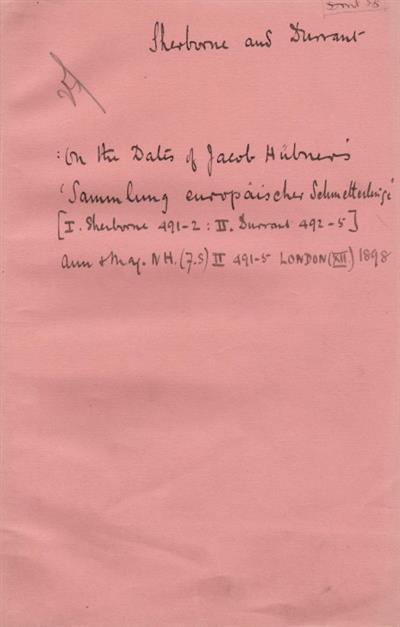 Sherborne and Durrant
: On the Dates of Jacob Hübner's
'Sammlung europäischer Schmetterlinge'
[I. Sherborne 491-2 : II. Durrant 492-5]
Ann & Mag. NH. (7.S) II 491-5 LONDON (XII.) 1898